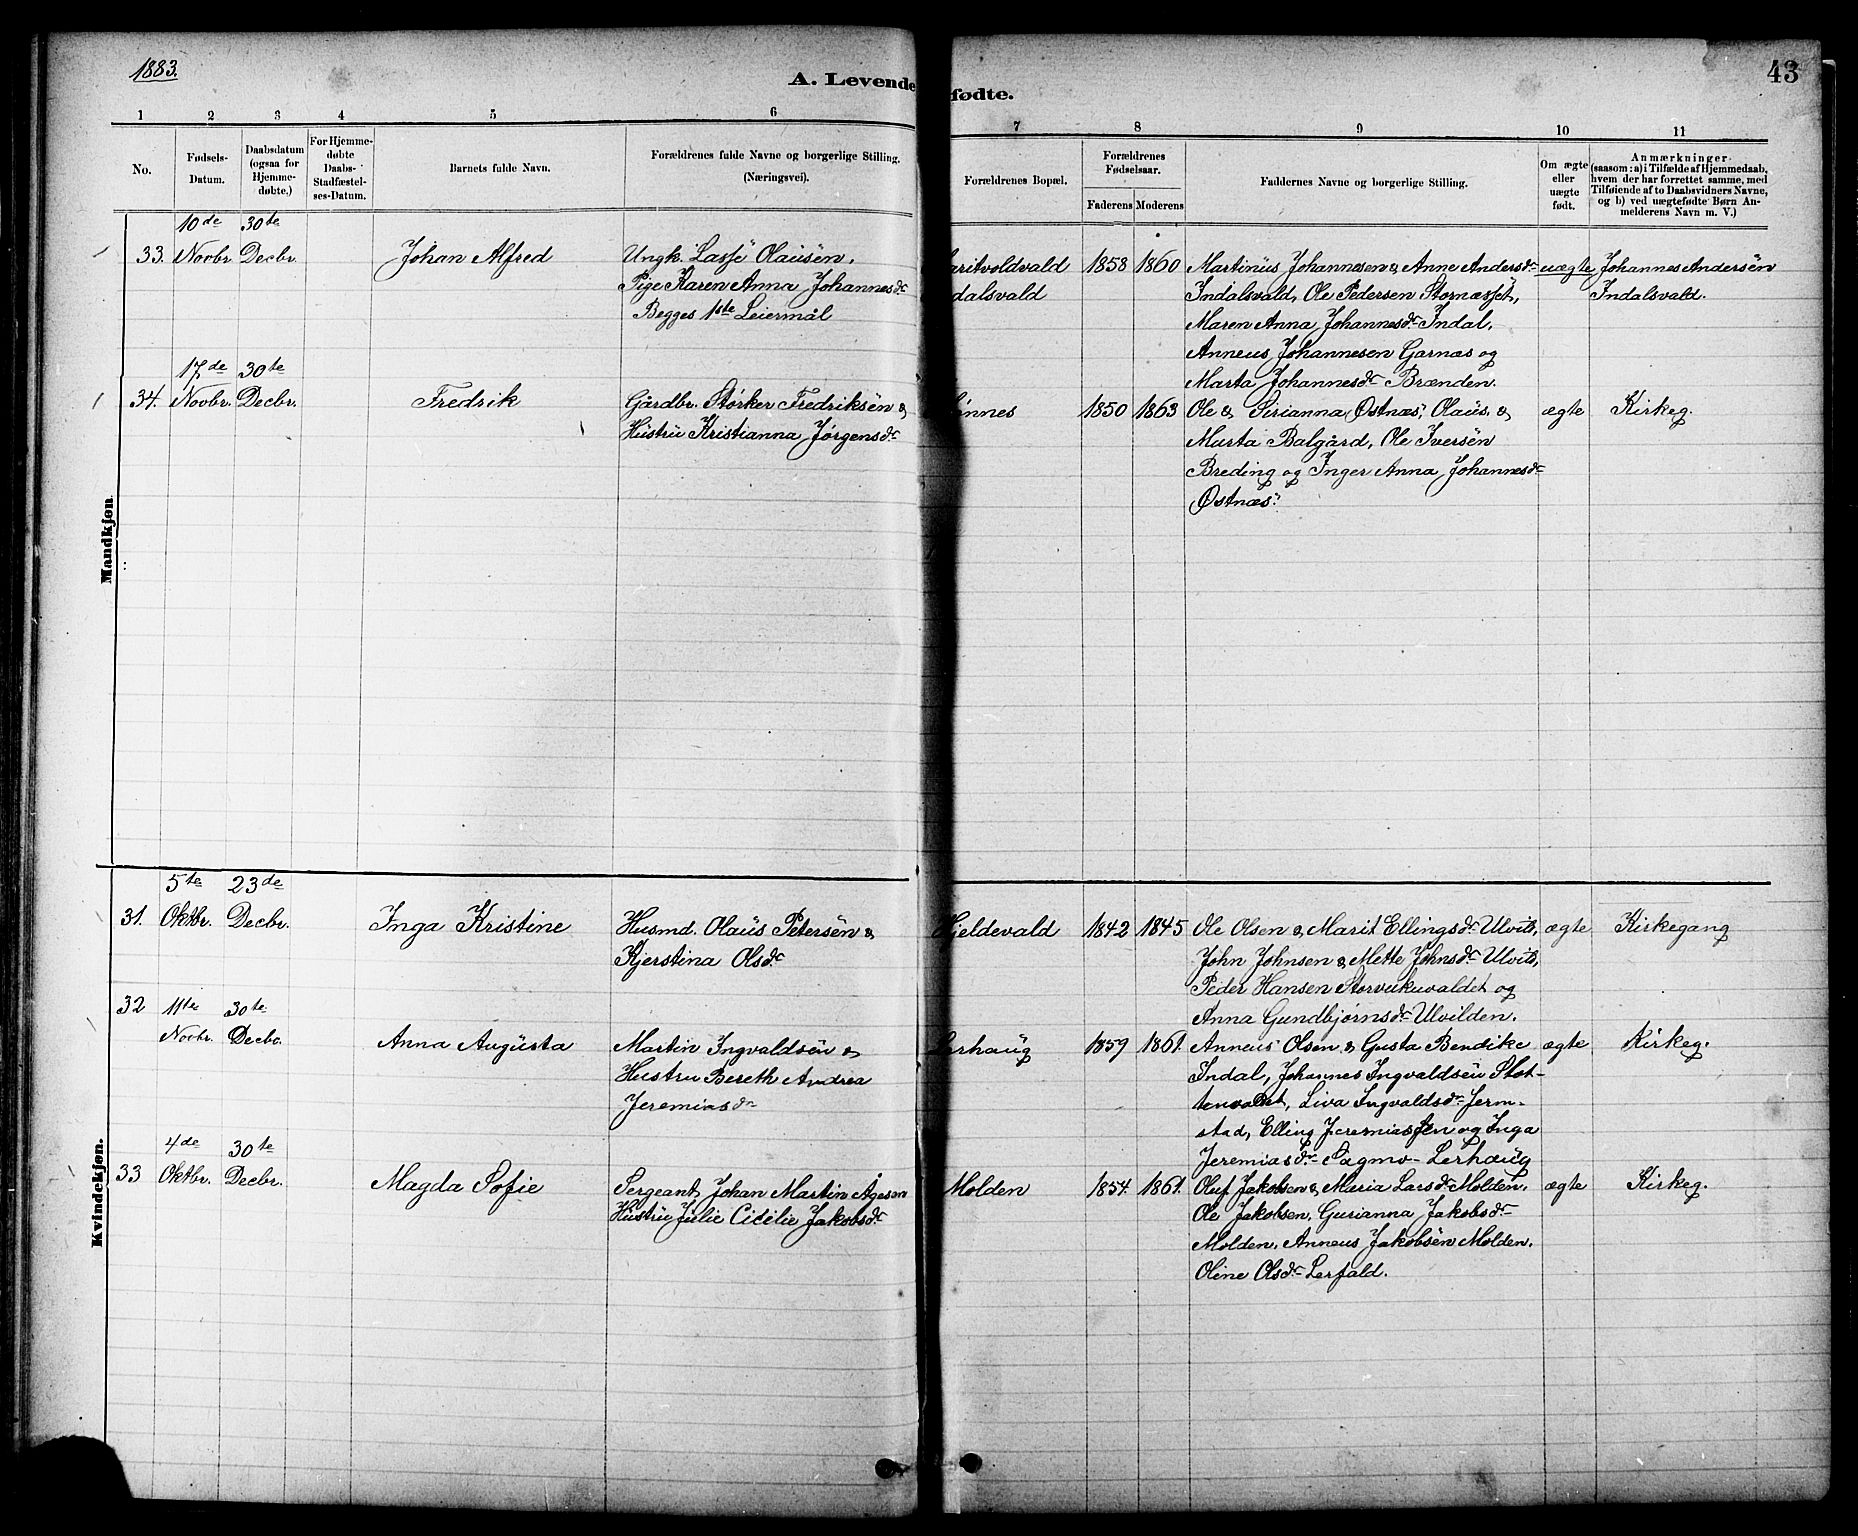 1883.
43
A. Levende fødte.
1 2 3 4 5 6 7 8 9 10 11
No.
Fødsels-
Datum.
Daabsdatum
(ogsaa for
Hjemme-
døbte.)
For Hjemme-
døbte
Daabs-
Stadfæstel-
ses-Datum.
Barnets fulde Navn.
Forældrenes fulde Navne og borgerlige Stilling.
(Næringsvei).
Forældrenes Bopæl.
Forældrenes
Fødselsaar.
Faderens Moderens
Faddernes Navne og borgerlige Stilling.
Om ægte
eller
uægte
født.
Anmærkninger
(saasom: a) i Tilfælde af Hjemmedaab,
hvem der har forrettet samme, med
Tilføiende af to Daabsvidners Navne,
og b) ved uægtefødte Børn An-
melderens Navn m. V.)
Mandkjøn.
10de 30te
33. Novbr. Decbr. Johan Alfred Ungk. Lasse Olausen, aritvoldvald 1858 1860 Martinus Johannesen & Anne Andersdr uægte Johannes Andersen
Pige Karen Anna Johannesdr dalsvald Indalsvald, Ole Pedersen Stornæsset, Indalsvald.
Begges 1ste Leiermål Maren Anna Johannesdr Indal,
Anneus Johannesen Garnæs og
17de 30te Marta Johannesdr Brænden.
34. Novbr. Decbr. Fredrik Gårdbr. Størker Fredriksen & nnes 1850 1863 Ole & Sirianna Østnæs, Olaus & ægte Kirkeg.
Hustru Kristianna Jørgensdr Marta Balgård, Ole Iversen
Breding og Inger Anna Johannesdr
Østnæs.
Kvindekjøn.
5te 23de
31. Oktbr. Decbr. Inga Kristine Husmd. Olaus Petersen & jeldevald 1842 1845 Ole Olsen & Marit Ellingsdr Ulvil, ægte Kirkegang
Kjerstina Olsdr John Johnsen & Mette Johnsdr Ulvil,
Peder Hansen Storvukuvaldet og
Anna Gundbjørnsdr Ulvilden.
32 11te 30te
Novbr. Decbr. Anna Augusta Martin Ingvaldsen & Lerhaug 1859 1861. Anneus Olsen & Gusta Bendike ægte Kirkeg.
Hustru Bereth Andrea Indal, Johannes Ingvaldsen Slot-
Jeremiasdr tenvaldet, Liva Ingvaldsdr Jerm-
stad, Elling Jeremiassen og Inga
4de 30te Jeremiasdr Sagmo- Lerhaug
33 Oktbr. Decbr. Magda Sofie Sergeant Johan Martin Ågesen Molden 1854. 1861. Oluf Jakobsen & Maria Larsdr Molden, ægte Kirkeg.
Hustru Julie Cicelie Jakobsdr Ole Jakobsen, Gurianna Jakobsdr
Molden, Anneus Jakobsen Molden,
Oline Olsdr Lerfald.